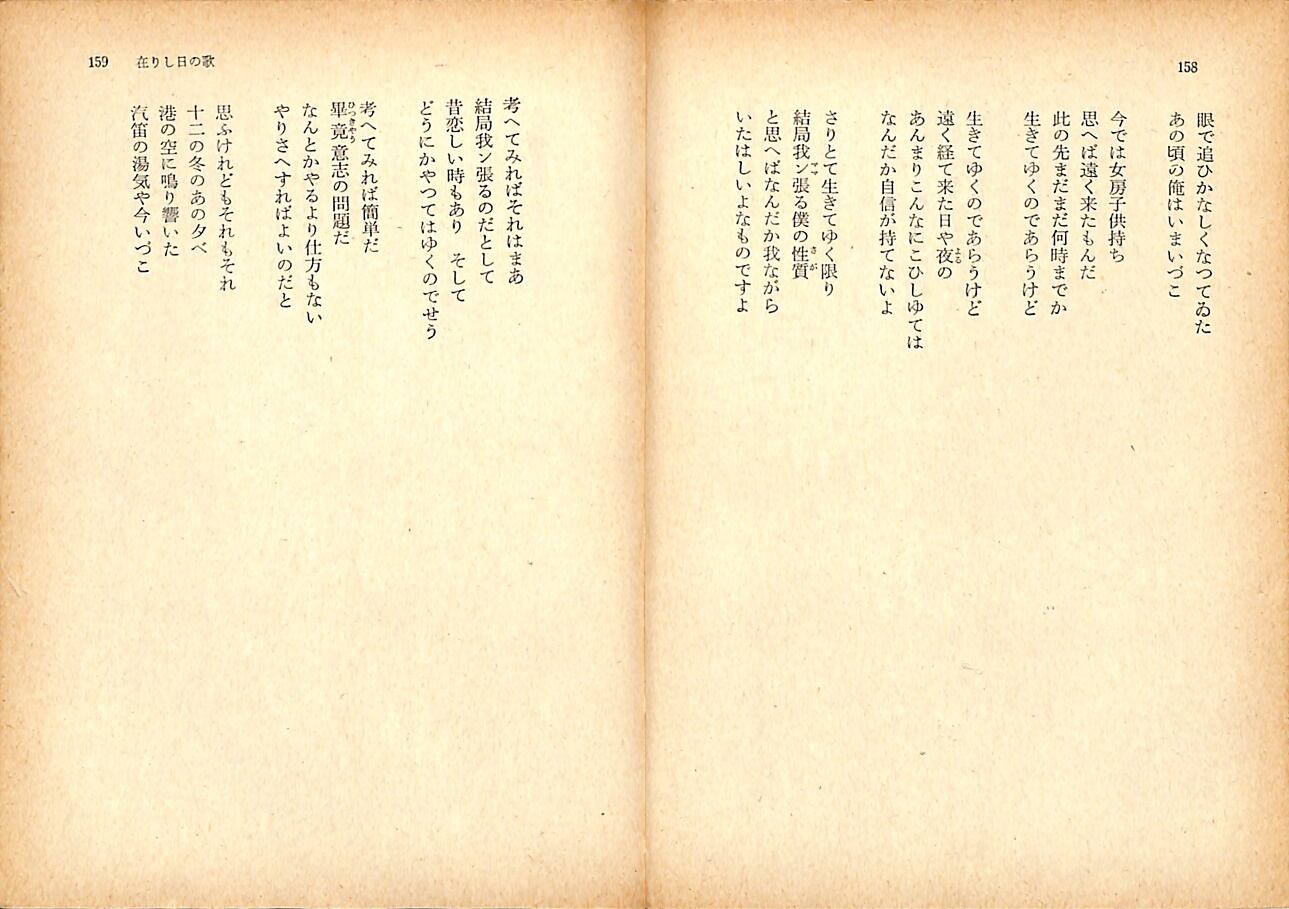 158
眼で追ひかなしくなつてゐた
あの頃の俺はいまいづこ
今では女房子供持ち
思へば遠く来たもんだ
此の先まだまだ何時までか
生きてゆくのであらうけど
生きてゆくのであらうけど
遠く経て来た日や夜の
よる
あんまりこんなにこひしゆては
なんだか自信が持てないよ
さりとて生きてゆく限り
結局我ン張る僕の性質
ママ
さが
と思へばなんだか我ながら
いたはしいよなものですよ
159 在りし日の歌
考へてみればそれはまあ
結局我ン張るのだとして
昔恋しい時もあり そして
どうにかやつてはゆくのでせう
考へてみれば簡単だ
畢竟意志の問題だ
ひつきやう
なんとかやるより仕方もない
やりさへすればよいのだと
思ふけれどもそれもそれ
十二の冬のあの夕べ
港の空に鳴り響いた
汽笛の湯気や今いづこ